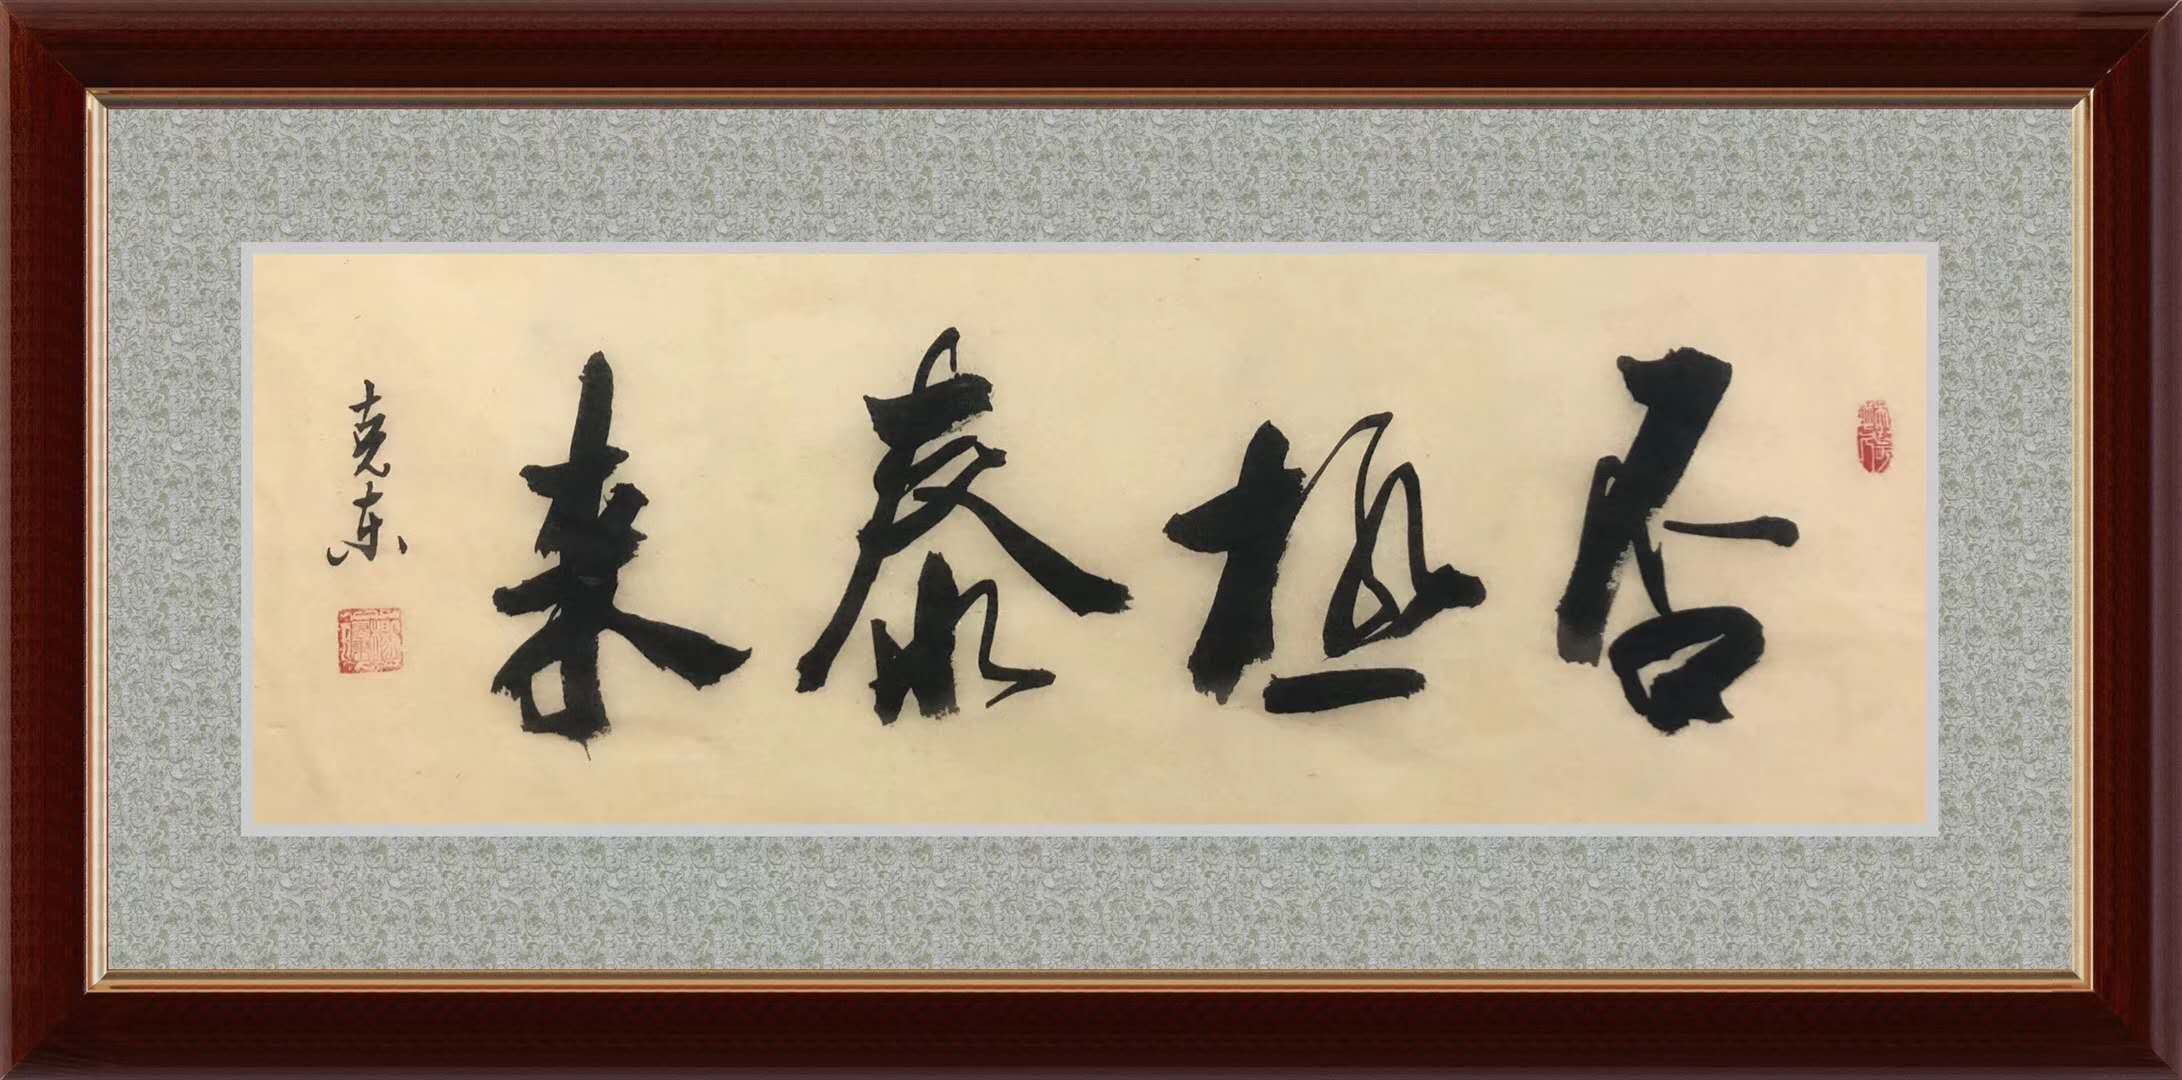 否極泰来
克东